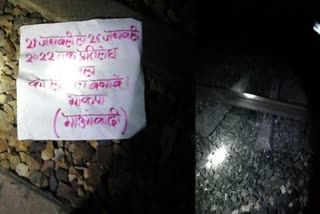 21 जनवरी से 26 जनवरी
2022 तक प्रतिरोध
को सफल बनावें
भाकपा
(माओवादी)